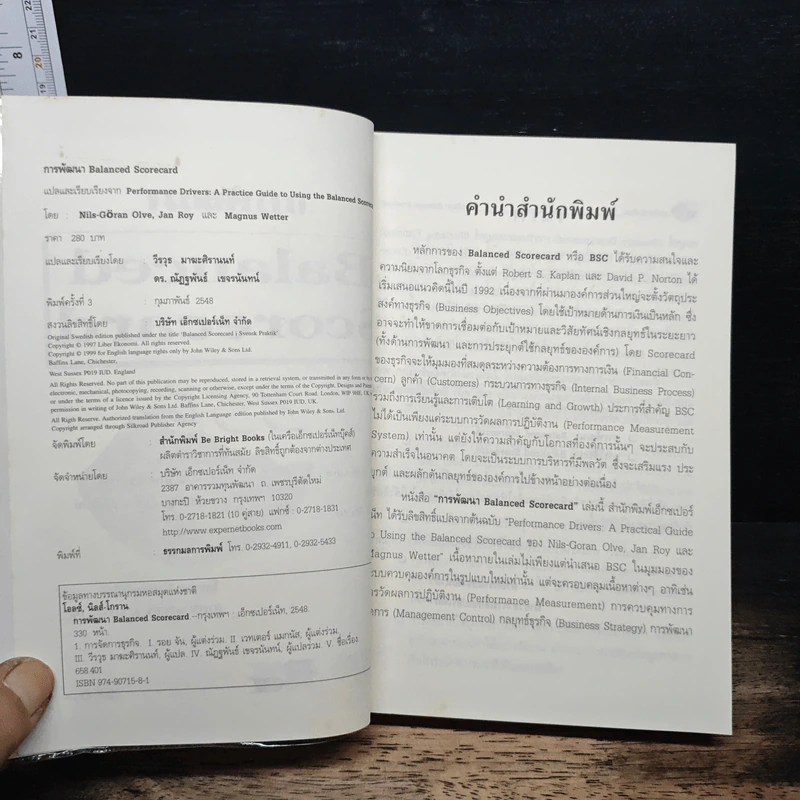 การพัฒนา Balanced Scorecard
แปลและเรียบเรียงจาก Performance Drivers: A Practice Guide to Using the Balanced Scorecard
โดย : Nils-Göran Olve, Jan Roy และ Magnus Wetter
ราคา 280 บาท
แปลและเรียบเรียงโดย : วีรวุธ มาฆะศิรานนท์
ดร. ณัฏฐพันธ์ เขจรนันทน์
พิมพ์ครั้งที่ 3 : กุมภาพันธ์ 2548
สงวนลิขสิทธิ์โดย : บริษัท เอ็กซเปอร์เน็ท จำกัด
Original Swedish edition published under the title 'Balanced Scorecard i Svensk Praktik'
Copyright © 1997 Liber Ekonomi. All rights reserved.
Copyright © 1999 for English language rights only by John Wiley & Sons Ltd.
Baffins Lane, Chichester,
West Sussex P019 IUD. England
All Rights Reserved. No part of this publication may be reproduced, stored in a retrieval system, or transmitted, in any form or b
electronic, mechanical, photocopying, recording, scanning or otherwise, except under the terms of the Copyright, Designs and Paten
or under the terms of a licence issued by the Copyright Licensing Agency, 90 Tottenham Court Road, London, WIP 9HE. UK
permission in writing of John Wiley & Sons Ltd. Baffins Lane, Chichester, West Sussex P019 IUD, UK.
All Rights Reserve. Authorized translation from the English Language edition published by John Wiley & Sons Ltd.
Copyright arranged through Silkroad Publisher Agency
จัดพิมพ์โดย : สำนักพิมพ์ Be Bright Books (ในเครือเอ็กซเปอร์เน็ทบุ๊คส์)
ผลิตตำราวิชาการที่ทันสมัย ลิขสิทธิ์ถูกต้องจากต่างประเทศ
จัดจำหน่ายโดย : บริษัท เอ็กซเปอร์เน็ท จำกัด
2387 อาคารรวมทุนพัฒนา ถ. เพชรบุรีตัดใหม่
บางกะปิ ห้วยขวาง กรุงเทพฯ 10320
โทร. 0-2718-1821 (10 คู่สาย) แฟกซ์ : 0-2718-1831
http://www.expernetbooks.com
พิมพ์ที่ : ธรรกมลการพิมพ์ โทร. 0-2932-4911, 0-2932-5433
ข้อมูลทางบรรณานุกรมหอสมุดแห่งชาติ
โอลซ์, นิลส์-โกราน.
การพัฒนา Balanced Scorecard --กรุงเทพฯ : เอ็กซเปอร์เน็ท, 2548.
330 หน้า.
1. การจัดการธุรกิจ. I. รอย จัน, ผู้แต่งร่วม. II. เวทเตอร์ แมกนัส, ผู้แต่งร่วม.
III. วีรวุธ มาฆะศิรานนท์, ผู้แปล. IV. ณัฏฐพันธ์ เขจรนันทน์, ผู้แปลร่วม. V. ชื่อเรื่อง.
658.401
ISBN 974-90715-8-1
คำนำสำนักพิมพ์
หลักการของ Balanced Scorecard หรือ BSC ได้รับความสนใจและ
ความนิยมจากโลกธุรกิจ ตั้งแต่ Robert S. Kaplan และ David P. Norton ได้
เริ่มเสนอแนวคิดนี้ในปี 1992 เนื่องจากที่ผ่านมาองค์การส่วนใหญ่จะตั้งวัตถุประ
สงค์ทางธุรกิจ (Business Objectives) โดยใช้เป้าหมายด้านการเงินเป็นหลัก ซึ่ง
อาจจะทำให้ขาดการเชื่อมต่อกับเป้าหมายและวิสัยทัศน์เชิงกลยุทธ์ในระยะยาว
(ทั้งด้านการพัฒนา และการประยุกต์ใช้กลยุทธ์ขององค์การ) โดย Scorecard
ของธุรกิจจะให้มุมมองที่สมดุลระหว่างความต้องการทางการเงิน (Financial Con-
cern) ลูกค้า (Customers) กระบวนการทางธุรกิจ (Internal Business Process)
รวมถึงการเรียนรู้และการเติบโต (Learning and Growth) ประการที่สำคัญ BSC
ไม่ได้เป็นเพียงแค่ระบบการวัดผลการปฏิบัติงาน (Performance Measurement
System) เท่านั้น แต่ยังให้ความสำคัญกับโอกาสที่องค์การนั้นๆ จะประสบกับ
ความสำเร็จในอนาคต โดยจะเป็นระบบการบริหารที่มีพลวัต ซึ่งจะเสริมแรง ประ
ยุกต์ และผลักดันกลยุทธ์ขององค์การไปข้างหน้าอย่างต่อเนื่อง
หนังสือ "การพัฒนา Balanced Scorecard" เล่มนี้ สำนักพิมพ์เอ็กซเปอร์
เน็ท ได้รับลิขสิทธิ์แปลจากต้นฉบับ "Performance Drivers: A Practical Guide
o Using the Balanced Scorecard ของ Nils-Goran Olve, Jan Roy และ
Magnus Wetter" เนื้อหาภายในเล่มไม่เพียงแต่นำเสนอ BSC ในมุมมองของ
ะบบควบคุมองค์การในรูปแบบใหม่เท่านั้น แต่จะครอบคลุมเนื้อหาต่างๆ อาทิเช่น
ารวัดผลการปฏิบัติงาน (Performance Measurement) การควบคุมทางการ
หการ (Management Control) กลยุทธ์ธุรกิจ (Business Strategy) การพัฒนา
8
19
20
21
22